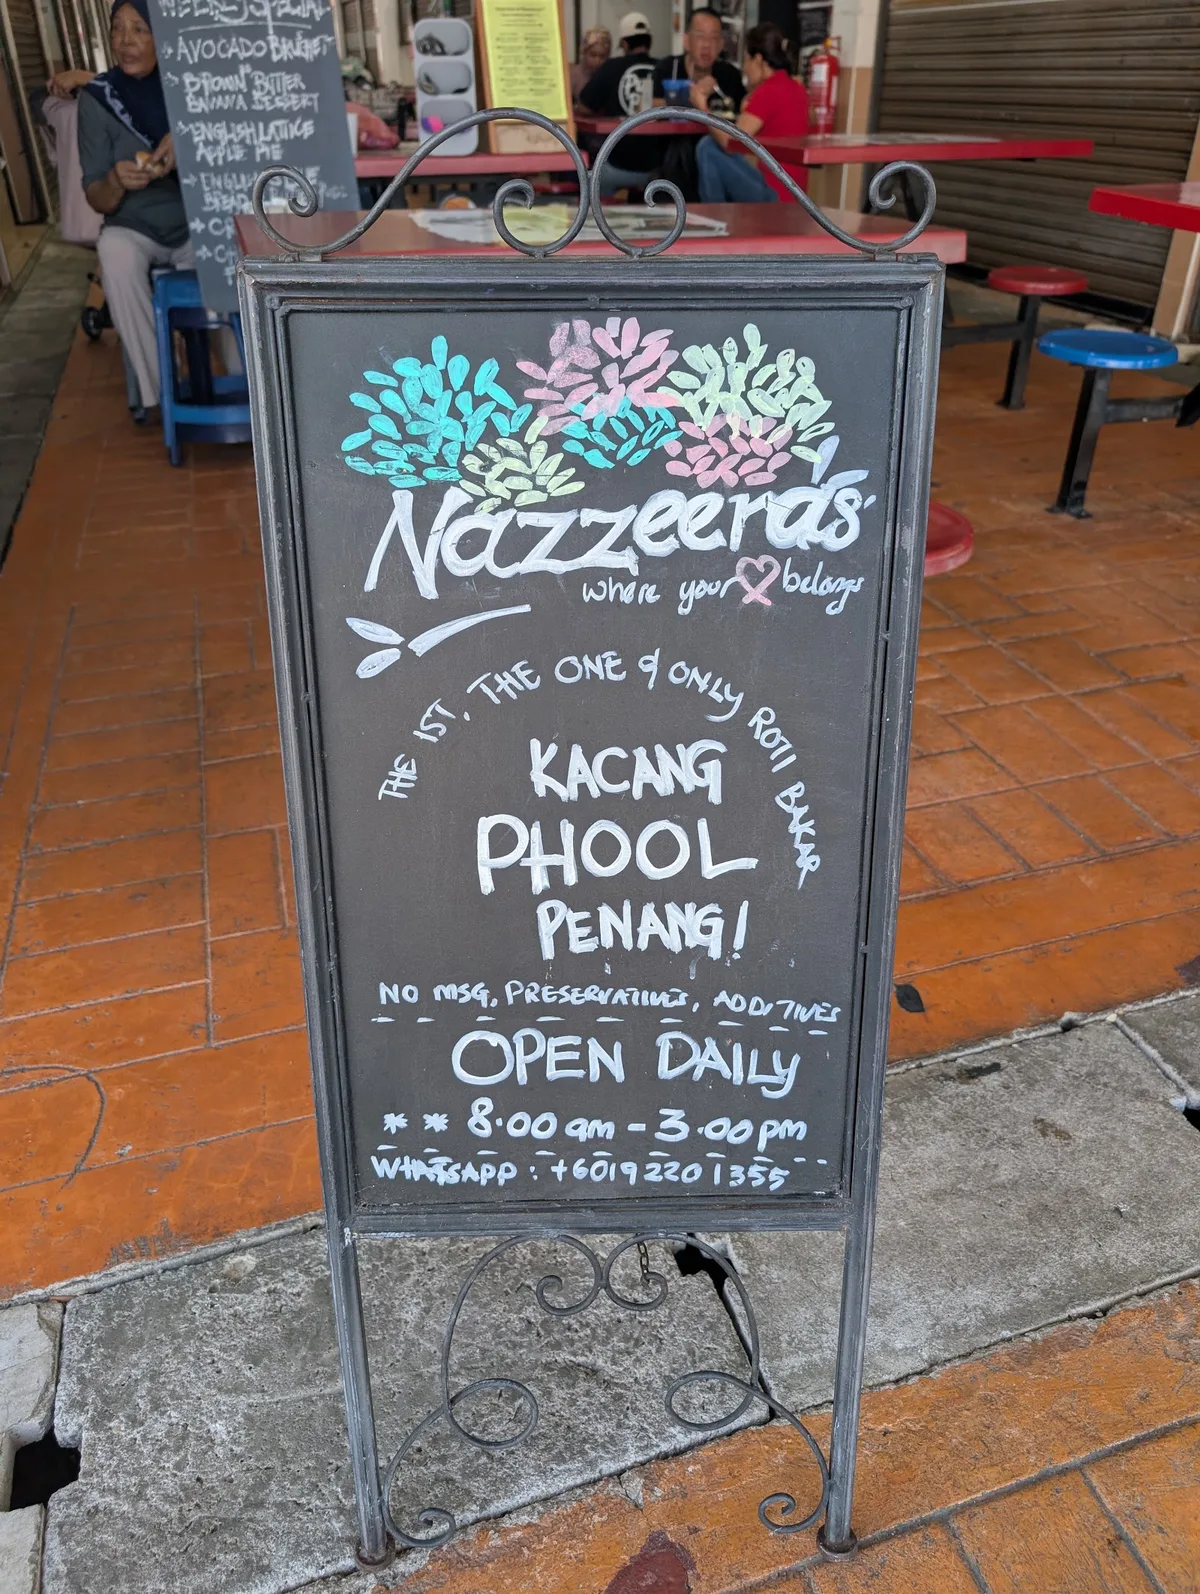 WEEKLY SPECIAL
AVOCADO
BROWN BUTTER
BANANA DESSERT
ENGLISH LATTICE
APPLE PIE
Nazzeera's
where your belongs
THE 1ST, THE ONE & ONLY ROTI BAKAR
KACANG
PHOOL
PENANG!
NO MSG, PRESERVATIVES, ADDITIVES
OPEN DAILY
** 8.00 am - 3.00 pm
WHATSAPP : +60192201355